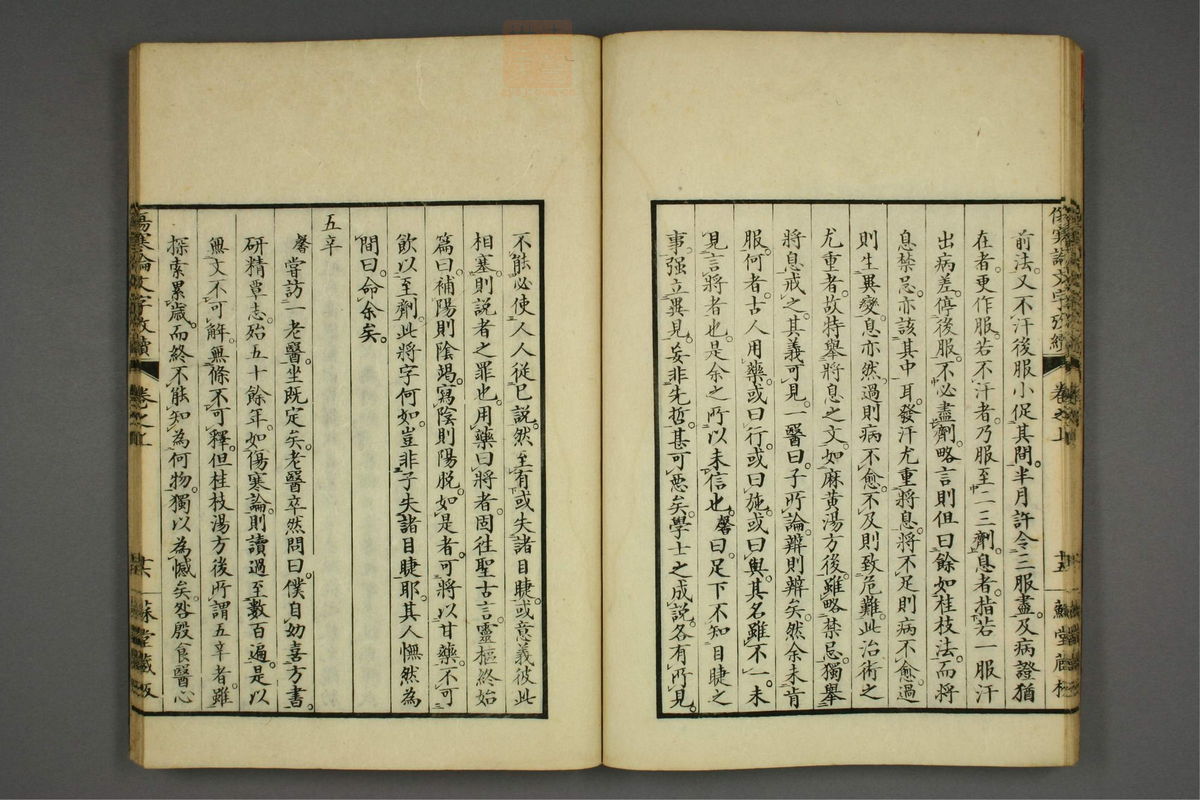 前法。又不汗後服小促其間。半月許令三服盡。及病證猶
在者。更作服。若不汗者。乃服至二三劑。息者。指若一服汗
出病差。停後服。不必盡劑。略言則但曰餘如桂枝法。而將
息禁忌。亦該其中耳。發汗尤重將息。將不足則病不愈。過
則生異變。息亦然。過則病不愈。不及則致危難。此治術之
尤重者。故特舉將息之文。如麻黄湯方後。雖略禁忌。獨舉
將息戒之。其義可見。一醫曰。子所論辨則辨矣。然余未肯
服。何者。古人用藥。或曰行。或曰施。或曰與。其名雖不一。未
見言將者也。是余之所以未信也。馨曰。足下不知目睫之
事。强立異見。妄非先哲。甚可惡矣。學士之成說。各有所見。
不能必使人人從已説。然至有或失諸目睫。或意義彼此
相塞。則説者之罪也。用藥曰將者。固往聖古言。靈樞終始
篇曰。補陽則陰竭。寫陰則陽脱。如是者。可將以甘藥。不可
飲以至劑。此將字何如。豈非子失諸目睫耶。其人憮然為
間曰。命余矣。
五辛
馨嘗訪一老醫。坐既定矣。老醫卒然問曰。僕自幼喜方書。
研精覃志。殆五十餘年。如傷寒論。則讀過至數百遍。是以
無文不可解。無條不可釋。但桂枝湯方後。所謂五辛者。雖
探索累歳。而終不能知為何物。獨以為憾矣。咎殷食醫心
傷寒論文字攷續 卷之上
蘇堂藏板